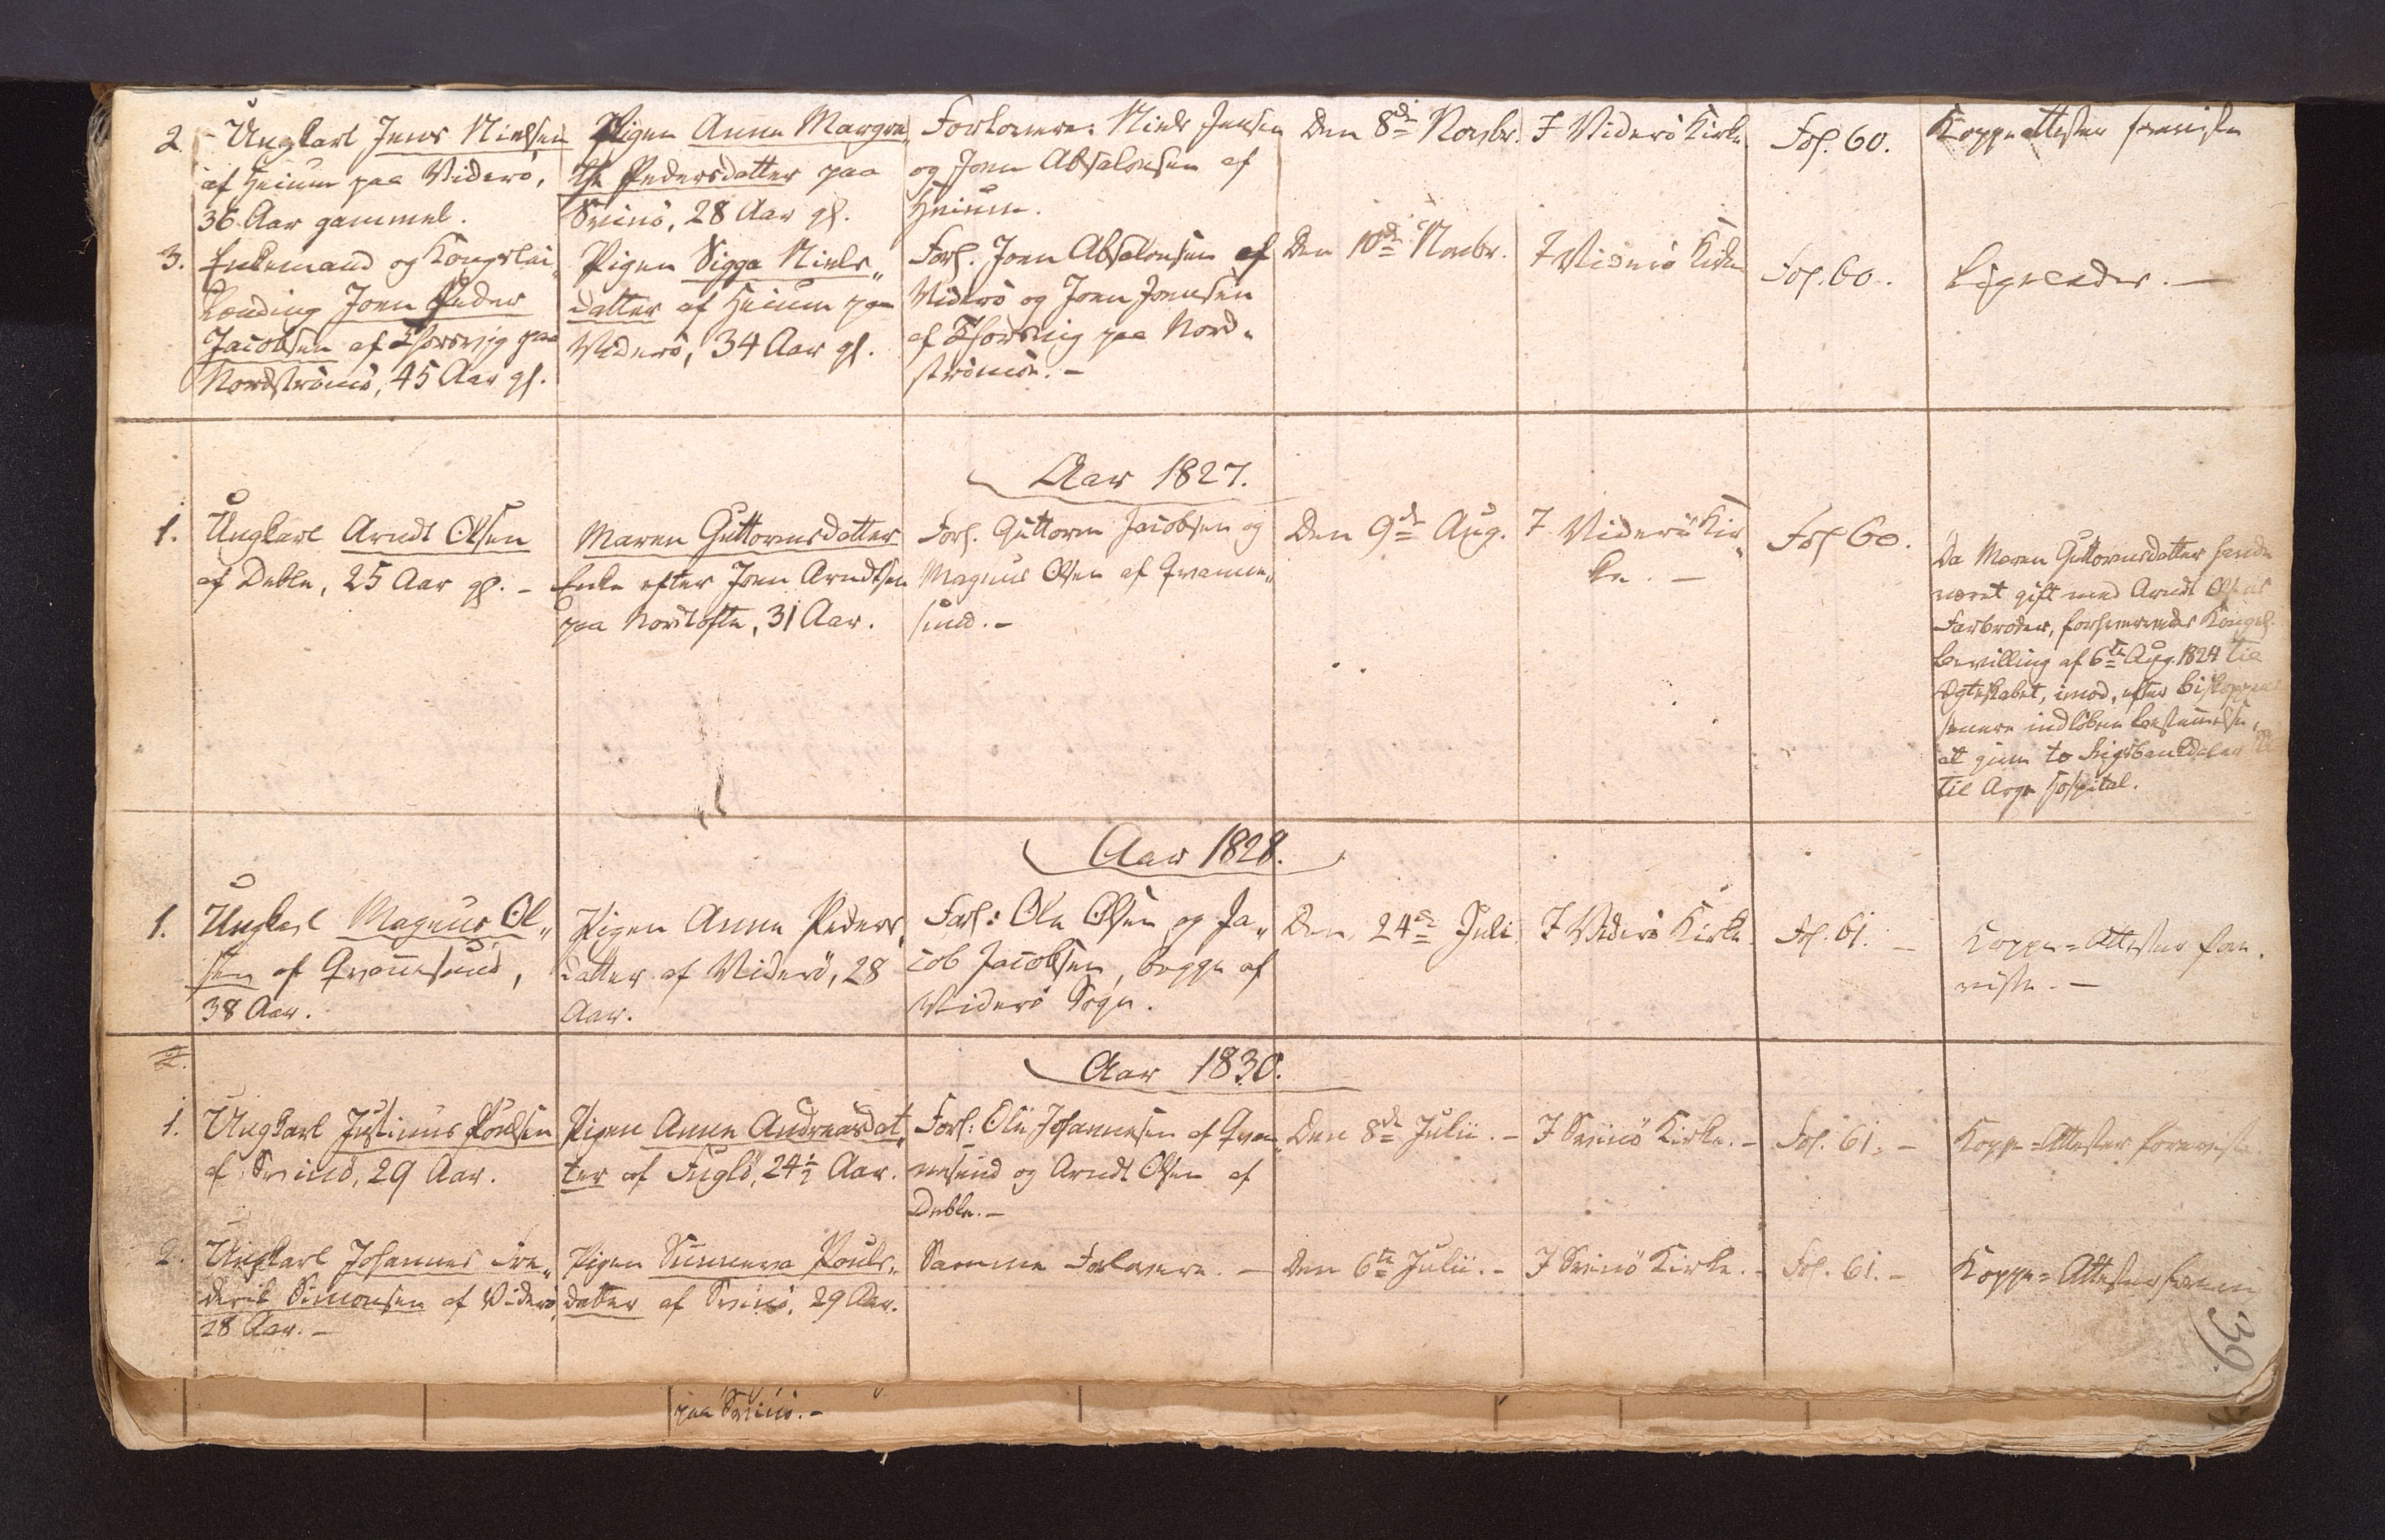 2 Ungkarl Jens Nielsen
af Heium paa Viderö,
36 Aar gammel.
Pigen Anna Margre„
the Pedersdatter paa
Svinö, 28 Aar gl.
Forlovere: Niels Jensen
og Joen Absalonsen af
Heium.
Den 8de Novbr.
I Viderö Kirke
Fol. 60.
Koppeattester foreviste
3. Enkemand og Kongslei„
lænding Joen Peder
Jacobsen af Thorsvig paa
Nordströmö, 45 Aar gl.
Pigen Sigga Niels„
datter af Heium paa
Viderö, 34 Aar gl.
Forl. Joen Absalonsen af
Viderö og Joen Joensen
af Thorsvig paa Nord„
strömöe. –
Den 10de Novbr.
I Viderö Kirke
Fol. 60.
Ligeledes. –
Aar 1827.
1. Ungkarl Arndt Olsen
af Deble, 25 Aar gl. –
Maren Guttormsdatter
Enke efter Joen Arndtsen
paa Nordtofte, 31 Aar.
Forl. Guttorm Jacobsen og
Magnus Olsen af Qvanne„
sund. –
Den 9de Aug.
I Viderö Kir„
ke. –
Fol 60.
Da Maren Guttormsdatter havde
været gift med Arndt Olsens
Farbroder, forhvervedes Kongel.
bevilling af 6te Aug. 1824 til
Ægteskabet, imod, efter Biskoppens
senere indløben bestemmelse,
at give to Rigsbankdaler
til Arge Hospital.
Aar 1828.
1. Ungkarl Magnus Ol„
sen af Qvannesund,
38 Aar.
Pigen Anna Peders„
datter af Viderö, 28
Aar.
Forl: Ole Olsen og Ja„
cob Jacobsen, begge af
Viderö Sogn.
Den 24de Juli
I Viderö Kirke
Fol. 61. –
Koppe=Attester fore„
viste. –
2.
Aar 1830.
1. Ungkarl Justinus Poulsen
af Svinö, 29 Aar.
Pigen Anna Andreasdat„
ter af Fuglö, 24½ Aar.
Forl: Ole Johannesen af Qvan„
nesund og Arndt Olsen af
Deble. –
Den 8de Julii. –
I Svinö Kirke. –
Fol. 61. –
Koppe=Attester foreviste
2. Ungkarl Johannes Fre„
derik Simonsen af Viderö,
28 Aar. –
Pigen Sunneva Pouls„
datter af Svinö, 29 Aar.
Samme Forlovere –
Den 6te Julii. –
I Svinö Kirke. –
Fol. 61. –
Koppe=Attester
39.
paa Svinö. –